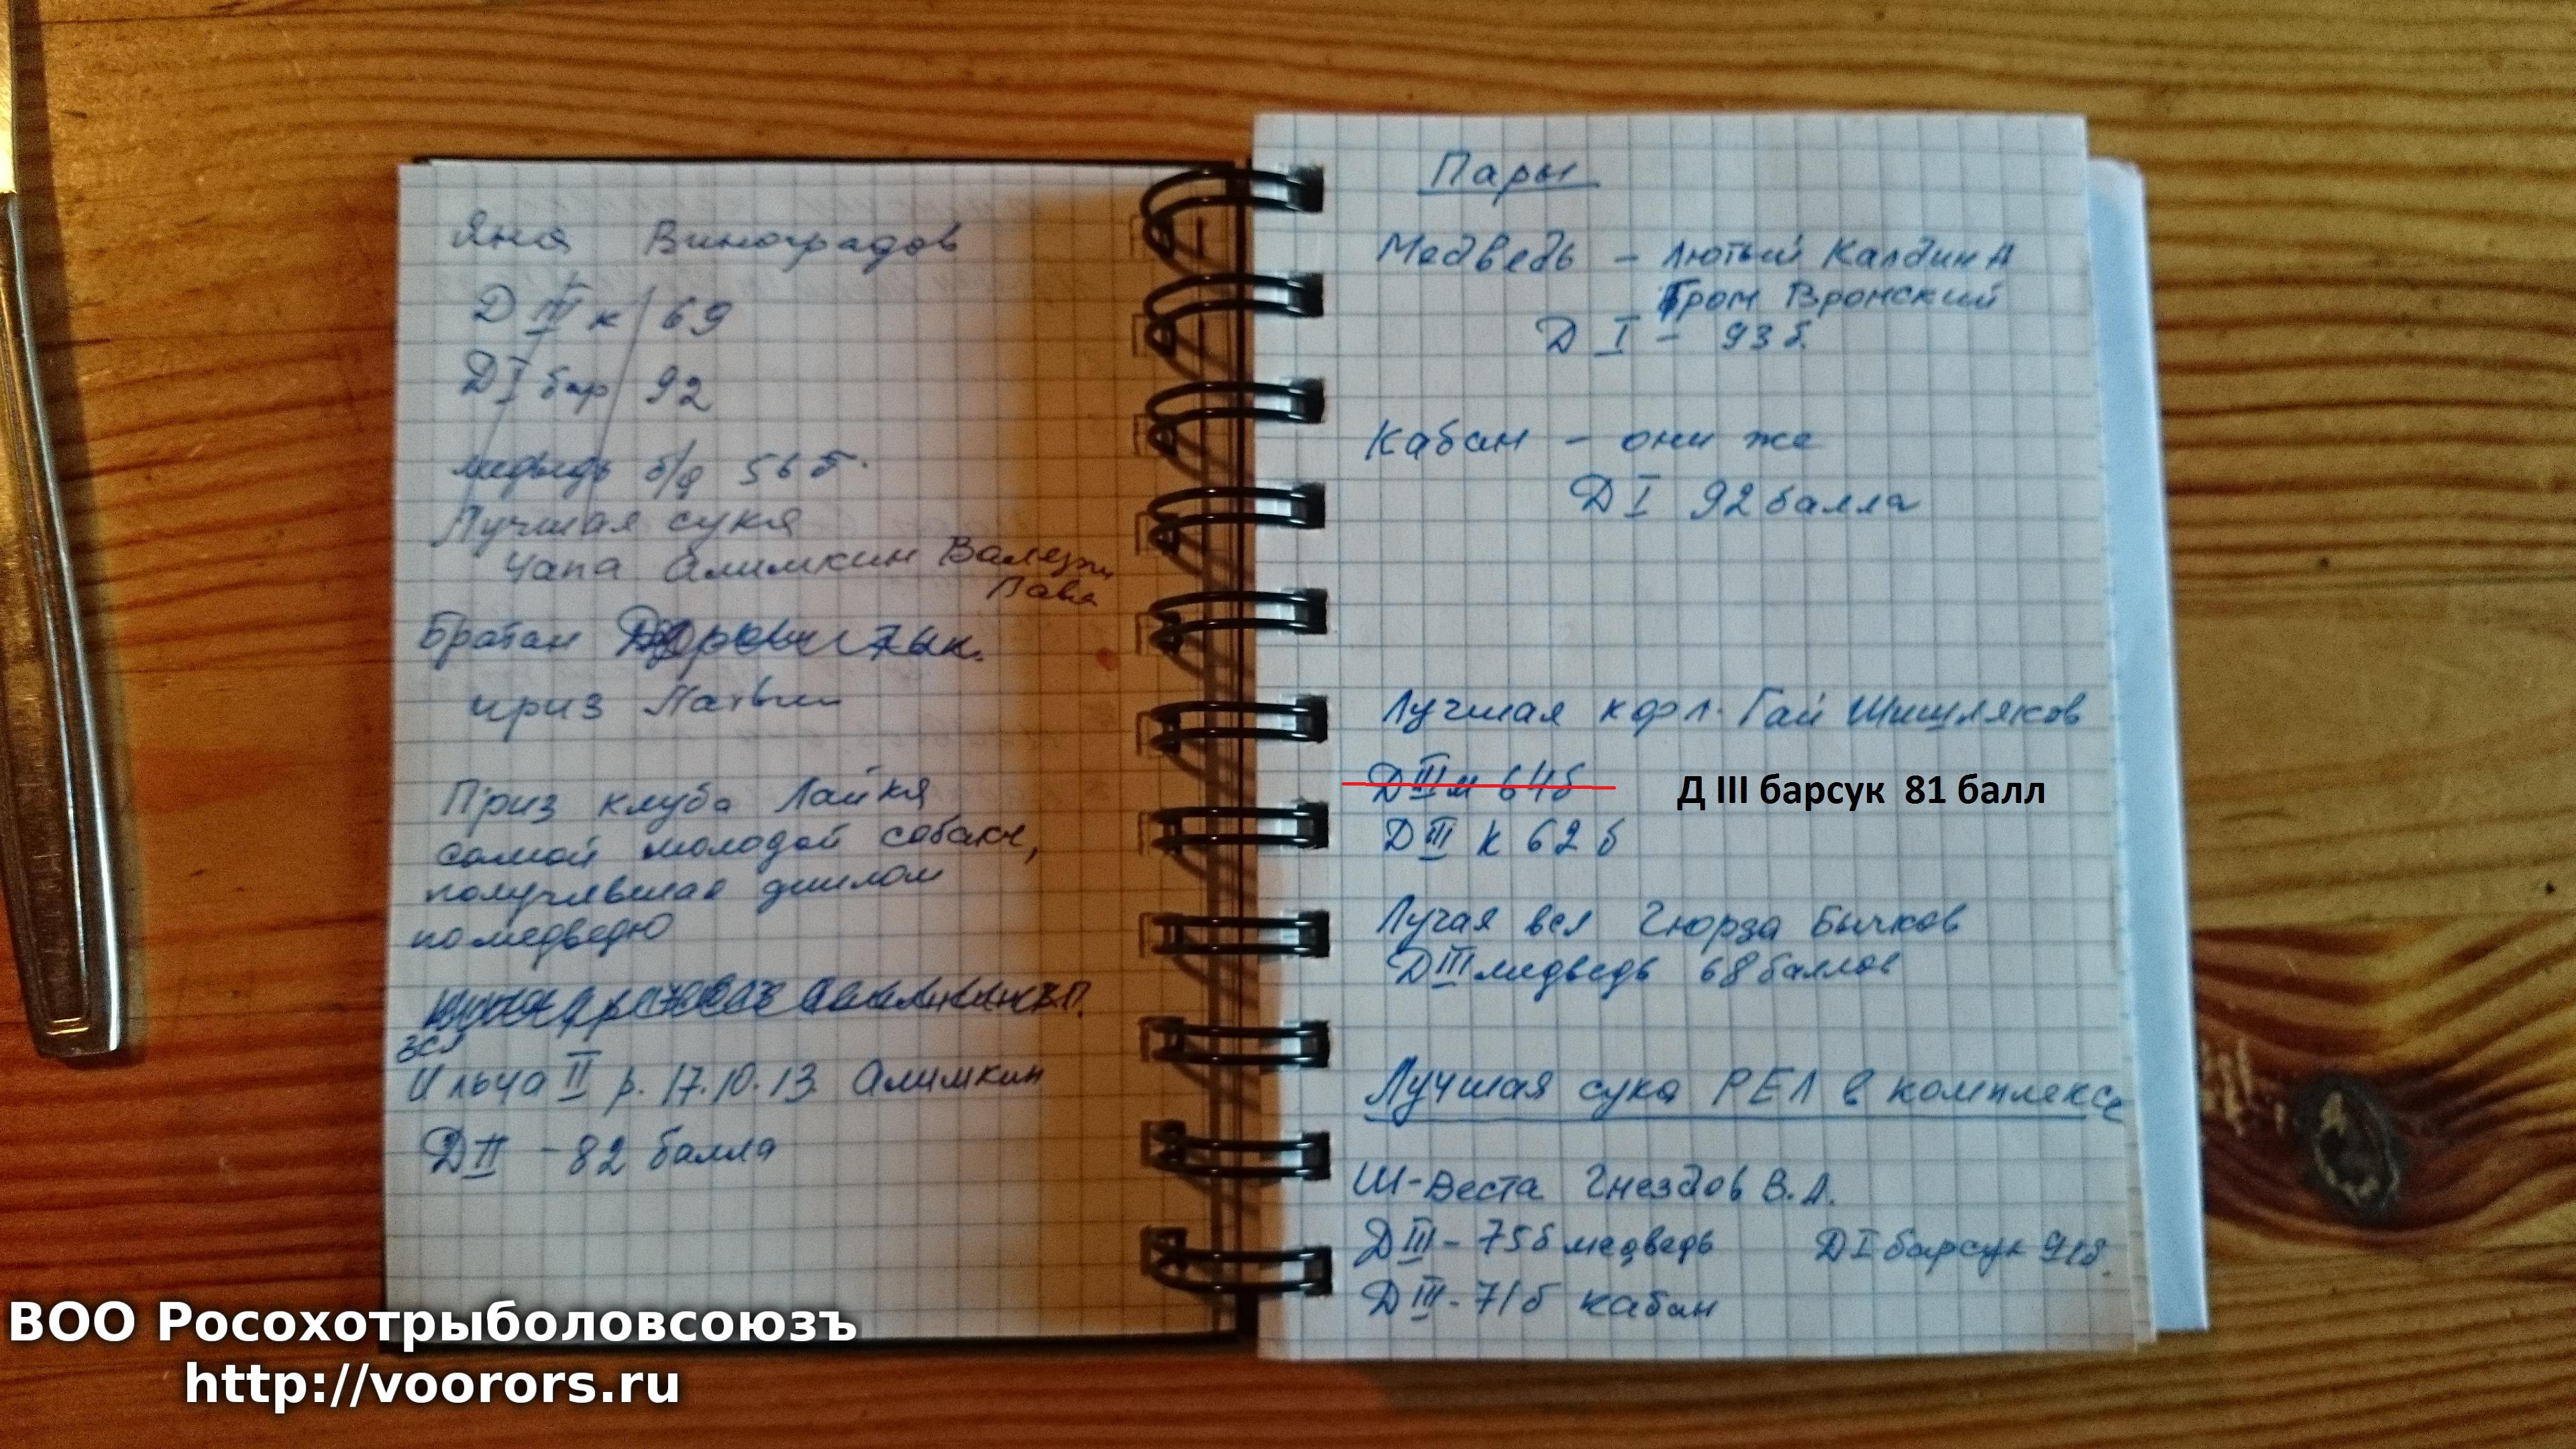 Яна Виноградов
Д III к 69
Д I бар 92
медведь б/д 56 б.
Лучшая сука
Чапа Алимкин Валери
Павл
Братан
приз Латвии
Приз клуба Лайка
самой молодой собаке,
получившая диплом
по медведю
ЗСЛ
Ильча II р. 17.10.13 Алимкин
Д II - 82 балла
Пары
Медведь - Лютый Калдин А
Гром Вронский
Д I - 93 б.
Кабан - они же
Д I 92 балла
Лучшая кфл. Гай Шишляков
Д III м 64б Д III барсук 81 балл
Д III к 62 б
Лучая всл Гюрза Бычков
Д III медведь 68 баллов
Лучшая сука РЕЛ в комплексе
Ш-Веста Гнездов В.А.
Д III - 75б медведь Д I барсук 91б.
Д III - 71б кабан
ВОО Росохотрыболовсоюзъ
http://voorors.ru